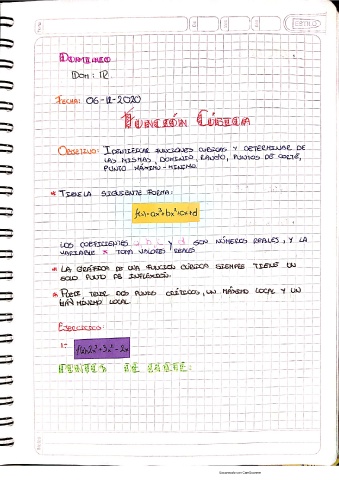 Dominio
Dom: ℝ
Fecha: 06-11-2020
Función Cúbica
Objetivo: Identificar funciones cubicas y determinar de
las mismas, dominio, rango, puntos de corte,
punto máximo - minimo.
* Tiene la siguiente forma:
f(x)=ax³+bx²+cx+d
Los coeficientes a, b, c y d son números reales, y la
variable x toma valores reales
* La gráfica de una funcion cúbica siempre tiene un
solo punto de inflexión.
* Puede tener dos puntos críticos, un máximo local y un
minimo local
Ejercicios:
1-
Puntos de corte: